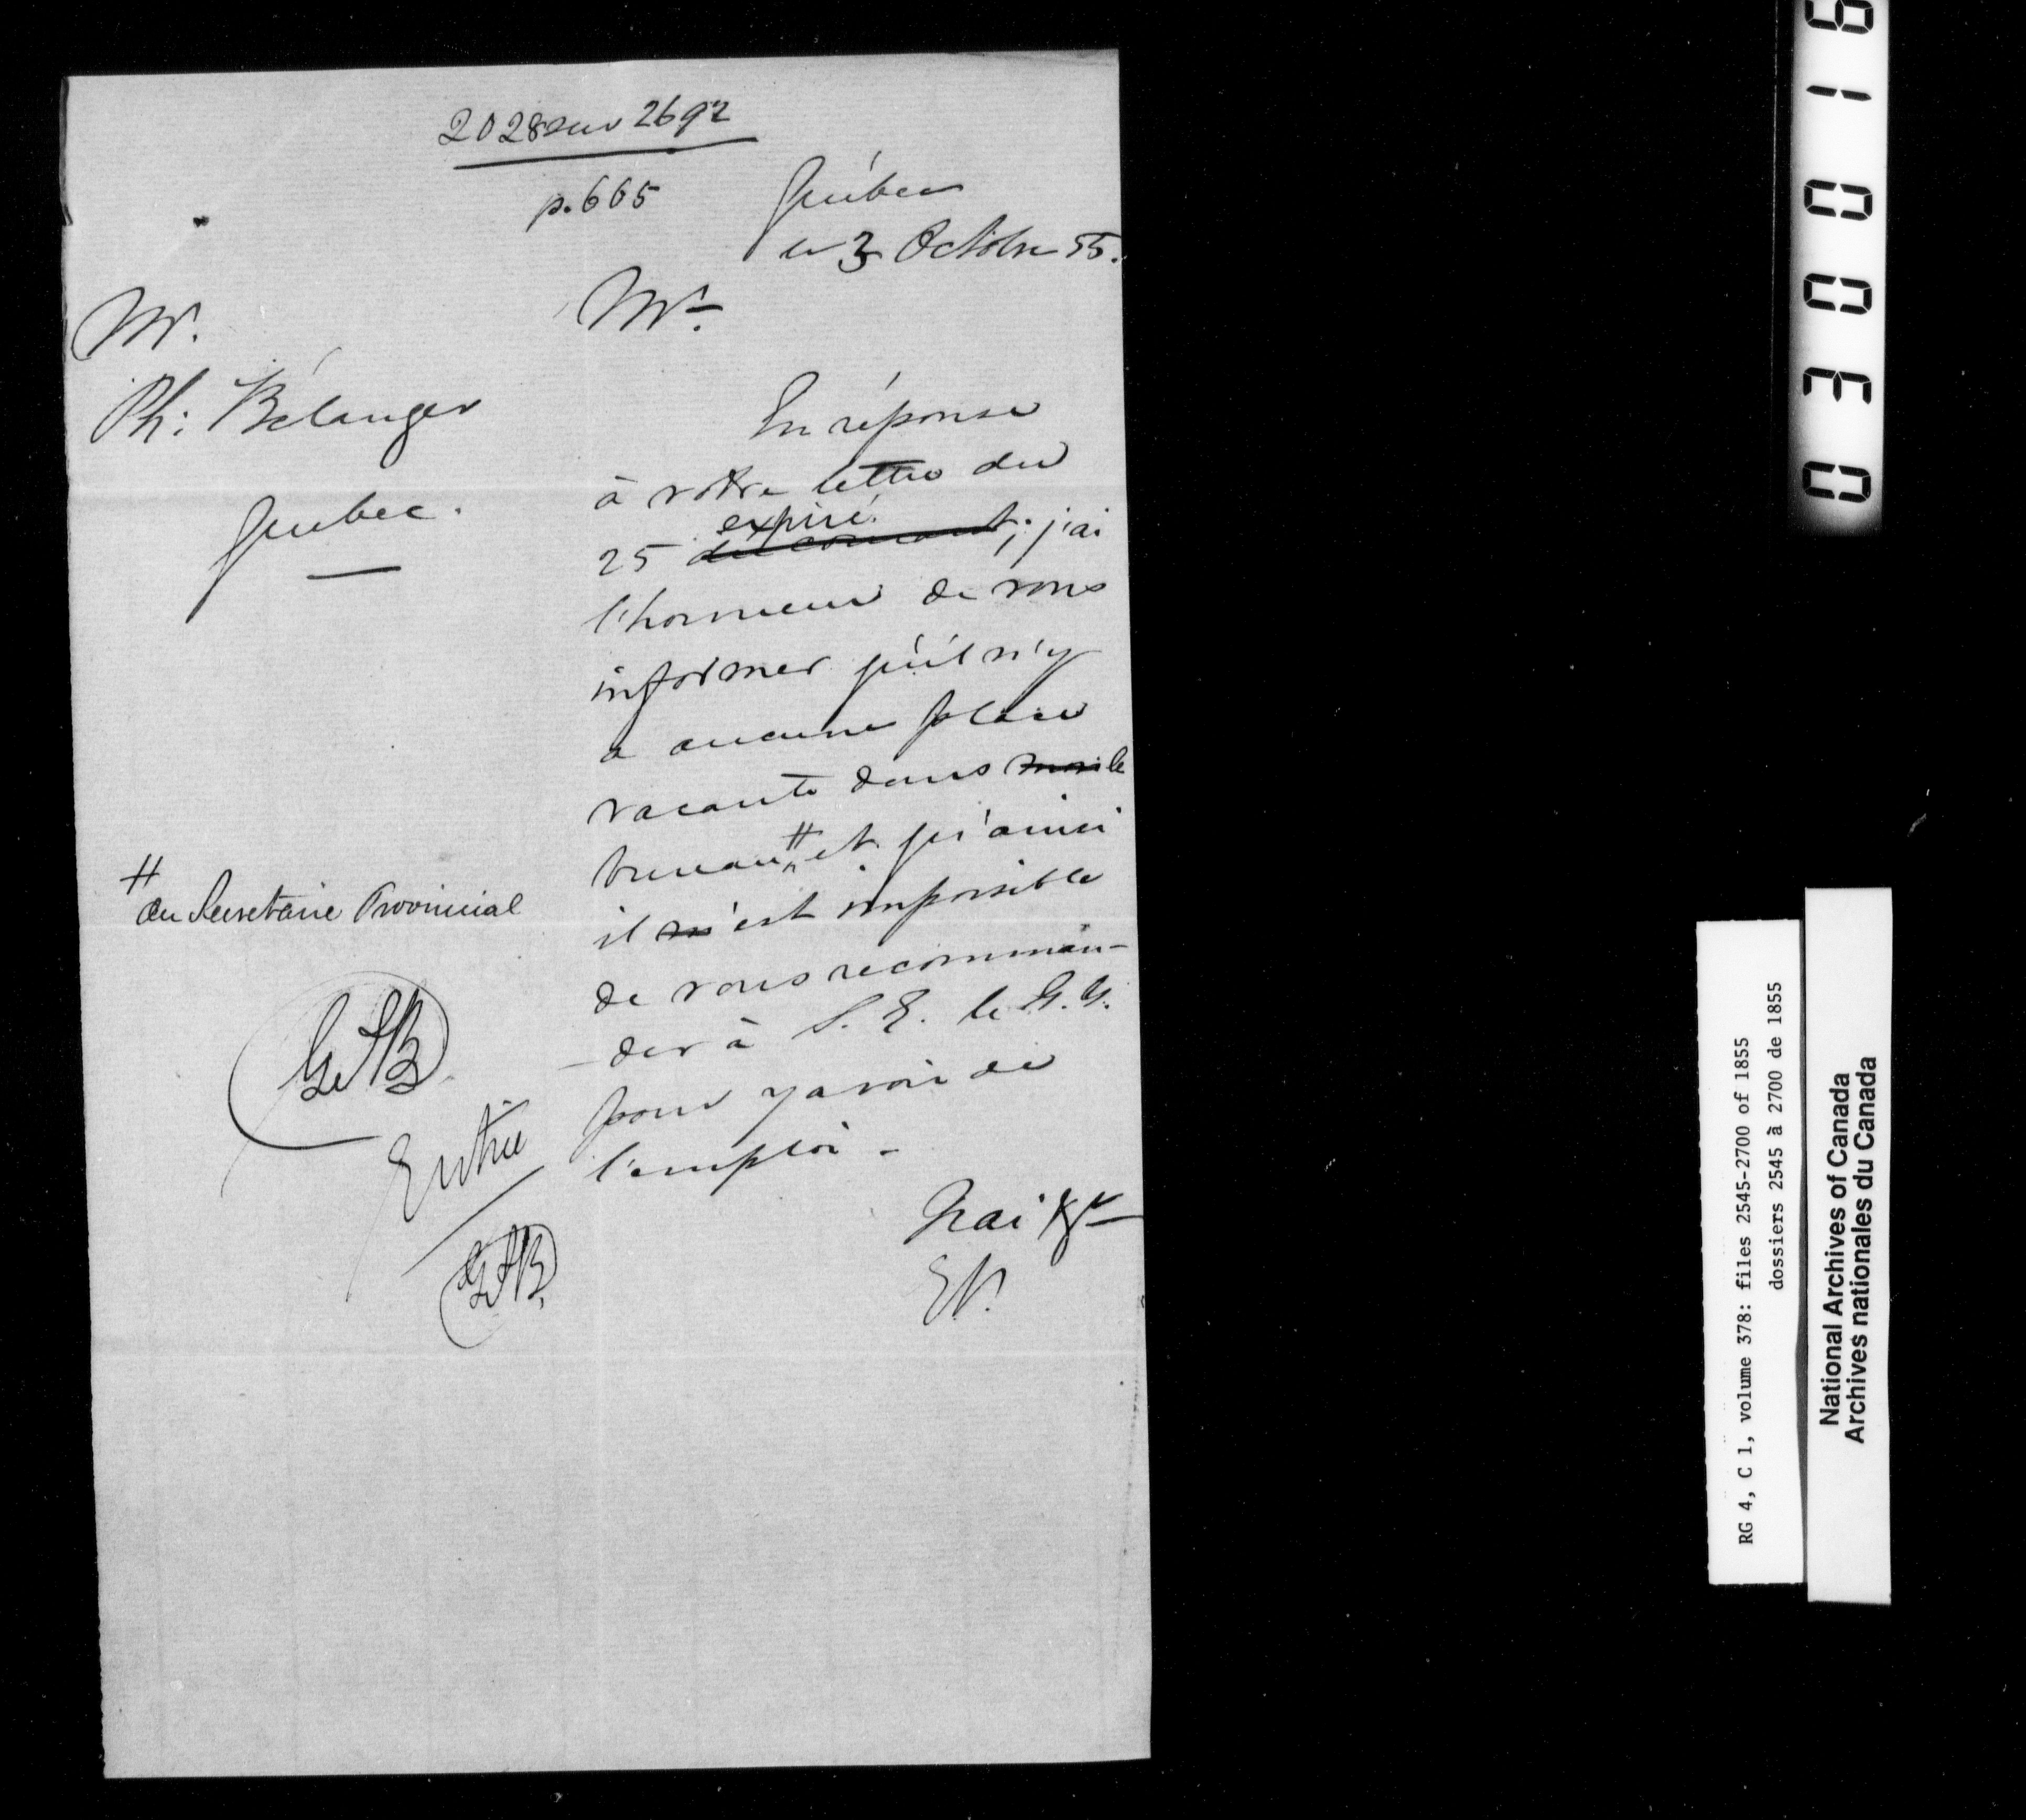 2028 sur 2692
p. 665
Québec
le 3 Octobre 55.
Mr.
Ph: Bélanger
Quebec.
Mr.
En réponse
à votre lettre du
expiré
25 du courant, j'ai
l'honneur de vous
informer qu'il n'y
a aucune place
vacante dans mon le
bureau # et qu'ainsi
il m'est impossible
de vous recomman-
-der à S. E. le G. G.
pour y avoir de
l'emploi -
#
du Secretaire Provincial
Entrée
J'ai &c
RG 4, C 1, volume 378: files 2545-2700 of 1855
dossiers 2545 à 2700 de 1855
National Archives of Canada
Archives nationales du Canada